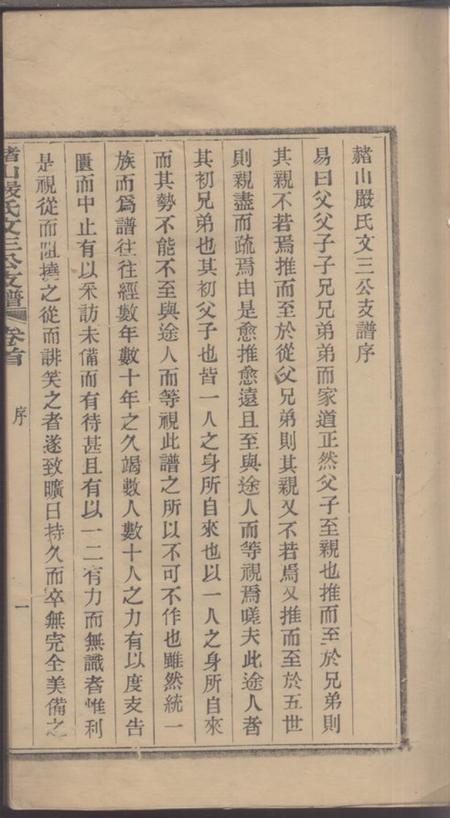 赭山嚴氏文三公支譜序
易曰父父子子兄兄弟弟而家道正然父子至親也推而至於兄弟則
其親不若焉推而至於從父兄弟則其親又不若焉又推而至於五世
則親盡而疏焉由是愈推愈遠且至與途人而等視焉嗟夫此途人者
其初兄弟也其初父子也皆一人之身所自來也以一人之身所自來
而其勢不能不至與途人而等視此譜之所以不可不作也雖然統一
族而爲譜往往經數年數十年之久竭數人數十人之力有以度支告
匱而中止有以釆訪未備而有待甚且有以一二有力而無識者惟利
是視從而阻撓之從而誹笑之者遂致曠日持久而卒無完全美備之
赭山嚴氏文三公支譜 卷首 序 一